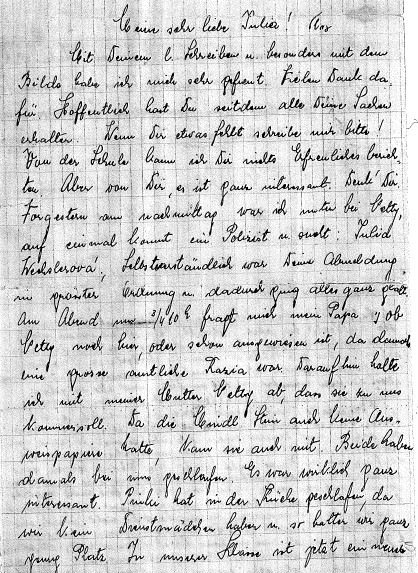 Meine sehr liebe Julia!
Mit Deinem l. Schreiben u. besonders mit dem
Bilde habe ich mich sehr gefreut. Vielen Dank da-
für. Hoffentlich hast Du seitdem alle Deine Sachen
erhalten. Wenn Dir etwas fehlt schreibe mir bitte!
Von der Schule kann ich Dir nichts Erfreuliches berich-
ten. Aber von Dir, es ist ganz interessant. Denk' Dir,
Vorgestern am nachmittag war ich unten bei Cetty,
auf einmal kommt ein Polizist u. sucht: Julia
Wechslerová, Selbstverständlich war Deine Abmeldung
in grösster Ordnung u. dadurch ging alles ganz glatt.
Am Abend um 3/4 10 h fragt mich mein Papa, ob
Cetty noch hier, oder schon ausgewiesen ist, da damals
eine grosse amtliche Razia war. Daraufhin holte
ich mit meiner Mutter Cetty ab, dass sie zu uns
kommen soll. Da die Hindl Stein auch keine Aus-
weispapiere hatte, kam sie auch mit. Beide haben
damals bei uns geschlafen. Es war wirklich ganz
interessant. hat in der Küche geschlafen, da
wir kein Dienstmädchen haben u. so hatten wir ganz
genug Platz. In unserer Klasse ist jetzt ein neues